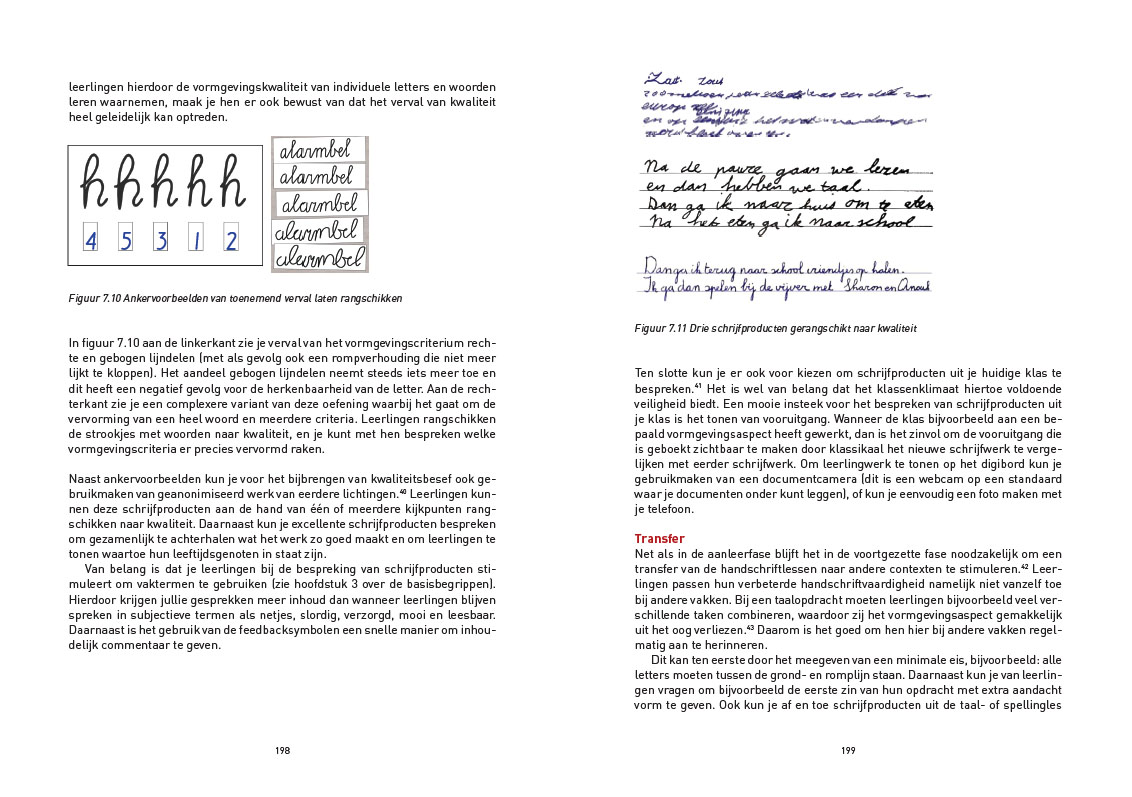 leerlingen hierdoor de vormgevingskwaliteit van individuele letters en woorden
leren waarnemen, maak je hen er ook bewust van dat het verval van kwaliteit
heel geleidelijk kan optreden.
h h h h h
4 5 3 1 2
alarmbel
alarmbel
alarmbel
alarmbel
alarmbel
Figuur 7.10 Ankervoorbeelden van toenemend verval laten rangschikken
In figuur 7.10 aan de linkerkant zie je verval van het vormgevingscriterium rech-
te en gebogen lijndelen (met als gevolg ook een rompverhouding die niet meer
lijkt te kloppen). Het aandeel gebogen lijndelen neemt steeds iets meer toe en
dit heeft een negatief gevolg voor de herkenbaarheid van de letter. Aan de rech-
terkant zie je een complexere variant van deze oefening waarbij het gaat om de
vervorming van een heel woord en meerdere criteria. Leerlingen rangschikken
de strookjes met woorden naar kwaliteit, en je kunt met hen bespreken welke
vormgevingscriteria er precies vervormd raken.
Naast ankervoorbeelden kun je voor het bijbrengen van kwaliteitsbesef ook ge-
bruikmaken van geanonimiseerd werk van eerdere lichtingen.⁴⁰ Leerlingen kun-
nen deze schrijfproducten aan de hand van één of meerdere kijkpunten rang-
schikken naar kwaliteit. Daarnaast kun je excellente schrijfproducten bespreken
om gezamenlijk te achterhalen wat het werk zo goed maakt en om leerlingen te
tonen waartoe hun leeftijdsgenoten in staat zijn.
Van belang is dat je leerlingen bij de bespreking van schrijfproducten sti-
muleert om vaktermen te gebruiken (zie hoofdstuk 3 over de basisbegrippen).
Hierdoor krijgen jullie gesprekken meer inhoud dan wanneer leerlingen blijven
spreken in subjectieve termen als netjes, slordig, verzorgd, mooi en leesbaar.
Daarnaast is het gebruik van de feedbacksymbolen een snelle manier om inhou-
delijk commentaar te geven.
198
Na de pauze gaan we lezen
en dan hebben we taal.
Dan ga ik naar huis om te eten
Na het eten ga ik naar school
Dan ga ik terug naar school vriendjes op halen.
Ik ga dan spelen bij de vijver met Sharon en Anouk
Figuur 7.11 Drie schrijfproducten gerangschikt naar kwaliteit
Ten slotte kun je er ook voor kiezen om schrijfproducten uit je huidige klas te
bespreken.⁴¹ Het is wel van belang dat het klassenklimaat hiertoe voldoende
veiligheid biedt. Een mooie insteek voor het bespreken van schrijfproducten uit
je klas is het tonen van vooruitgang. Wanneer de klas bijvoorbeeld aan een be-
paald vormgevingsaspect heeft gewerkt, dan is het zinvol om de vooruitgang die
is geboekt zichtbaar te maken door klassikaal het nieuwe schrijfwerk te verge-
lijken met eerder schrijfwerk. Om leerlingwerk te tonen op het digibord kun je
gebruikmaken van een documentcamera (dit is een webcam op een standaard
waar je documenten onder kunt leggen), of kun je eenvoudig een foto maken met
je telefoon.
Transfer
Net als in de aanleerfase blijft het in de voortgezette fase noodzakelijk om een
transfer van de handschriftlessen naar andere contexten te stimuleren.⁴² Leer-
lingen passen hun verbeterde handschriftvaardigheid namelijk niet vanzelf toe
bij andere vakken. Bij een taalopdracht moeten leerlingen bijvoorbeeld veel ver-
schillende taken combineren, waardoor zij het vormgevingsaspect gemakkelijk
uit het oog verliezen.⁴³ Daarom is het goed om hen hier bij andere vakken regel-
matig aan te herinneren.
Dit kan ten eerste door het meegeven van een minimale eis, bijvoorbeeld: alle
letters moeten tussen de grond- en romplijn staan. Daarnaast kun je van leerlin-
gen vragen om bijvoorbeeld de eerste zin van hun opdracht met extra aandacht
vorm te geven. Ook kun je af en toe schrijfproducten uit de taal- of spellingles
199